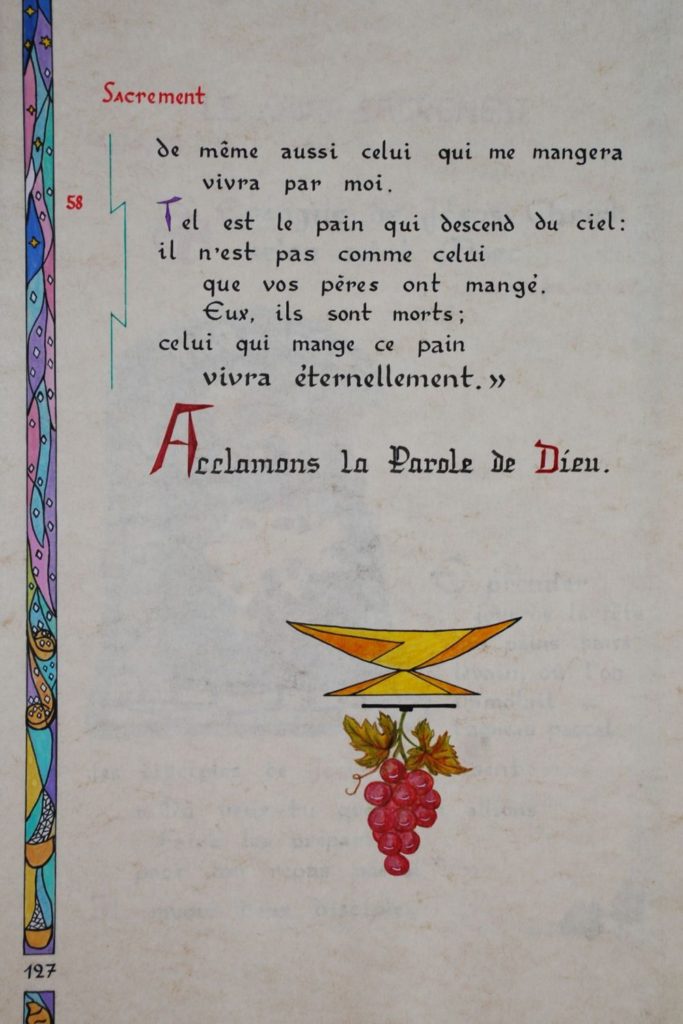 Sacrement
de même aussi celui qui me mangera
vivra par moi.
58
Tel est le pain qui descend du ciel:
il n'est pas comme celui
que vos pères ont mangé.
Eux, ils sont morts;
celui qui mange ce pain
vivra éternellement.»
Acclamons la Parole de Dieu.
127